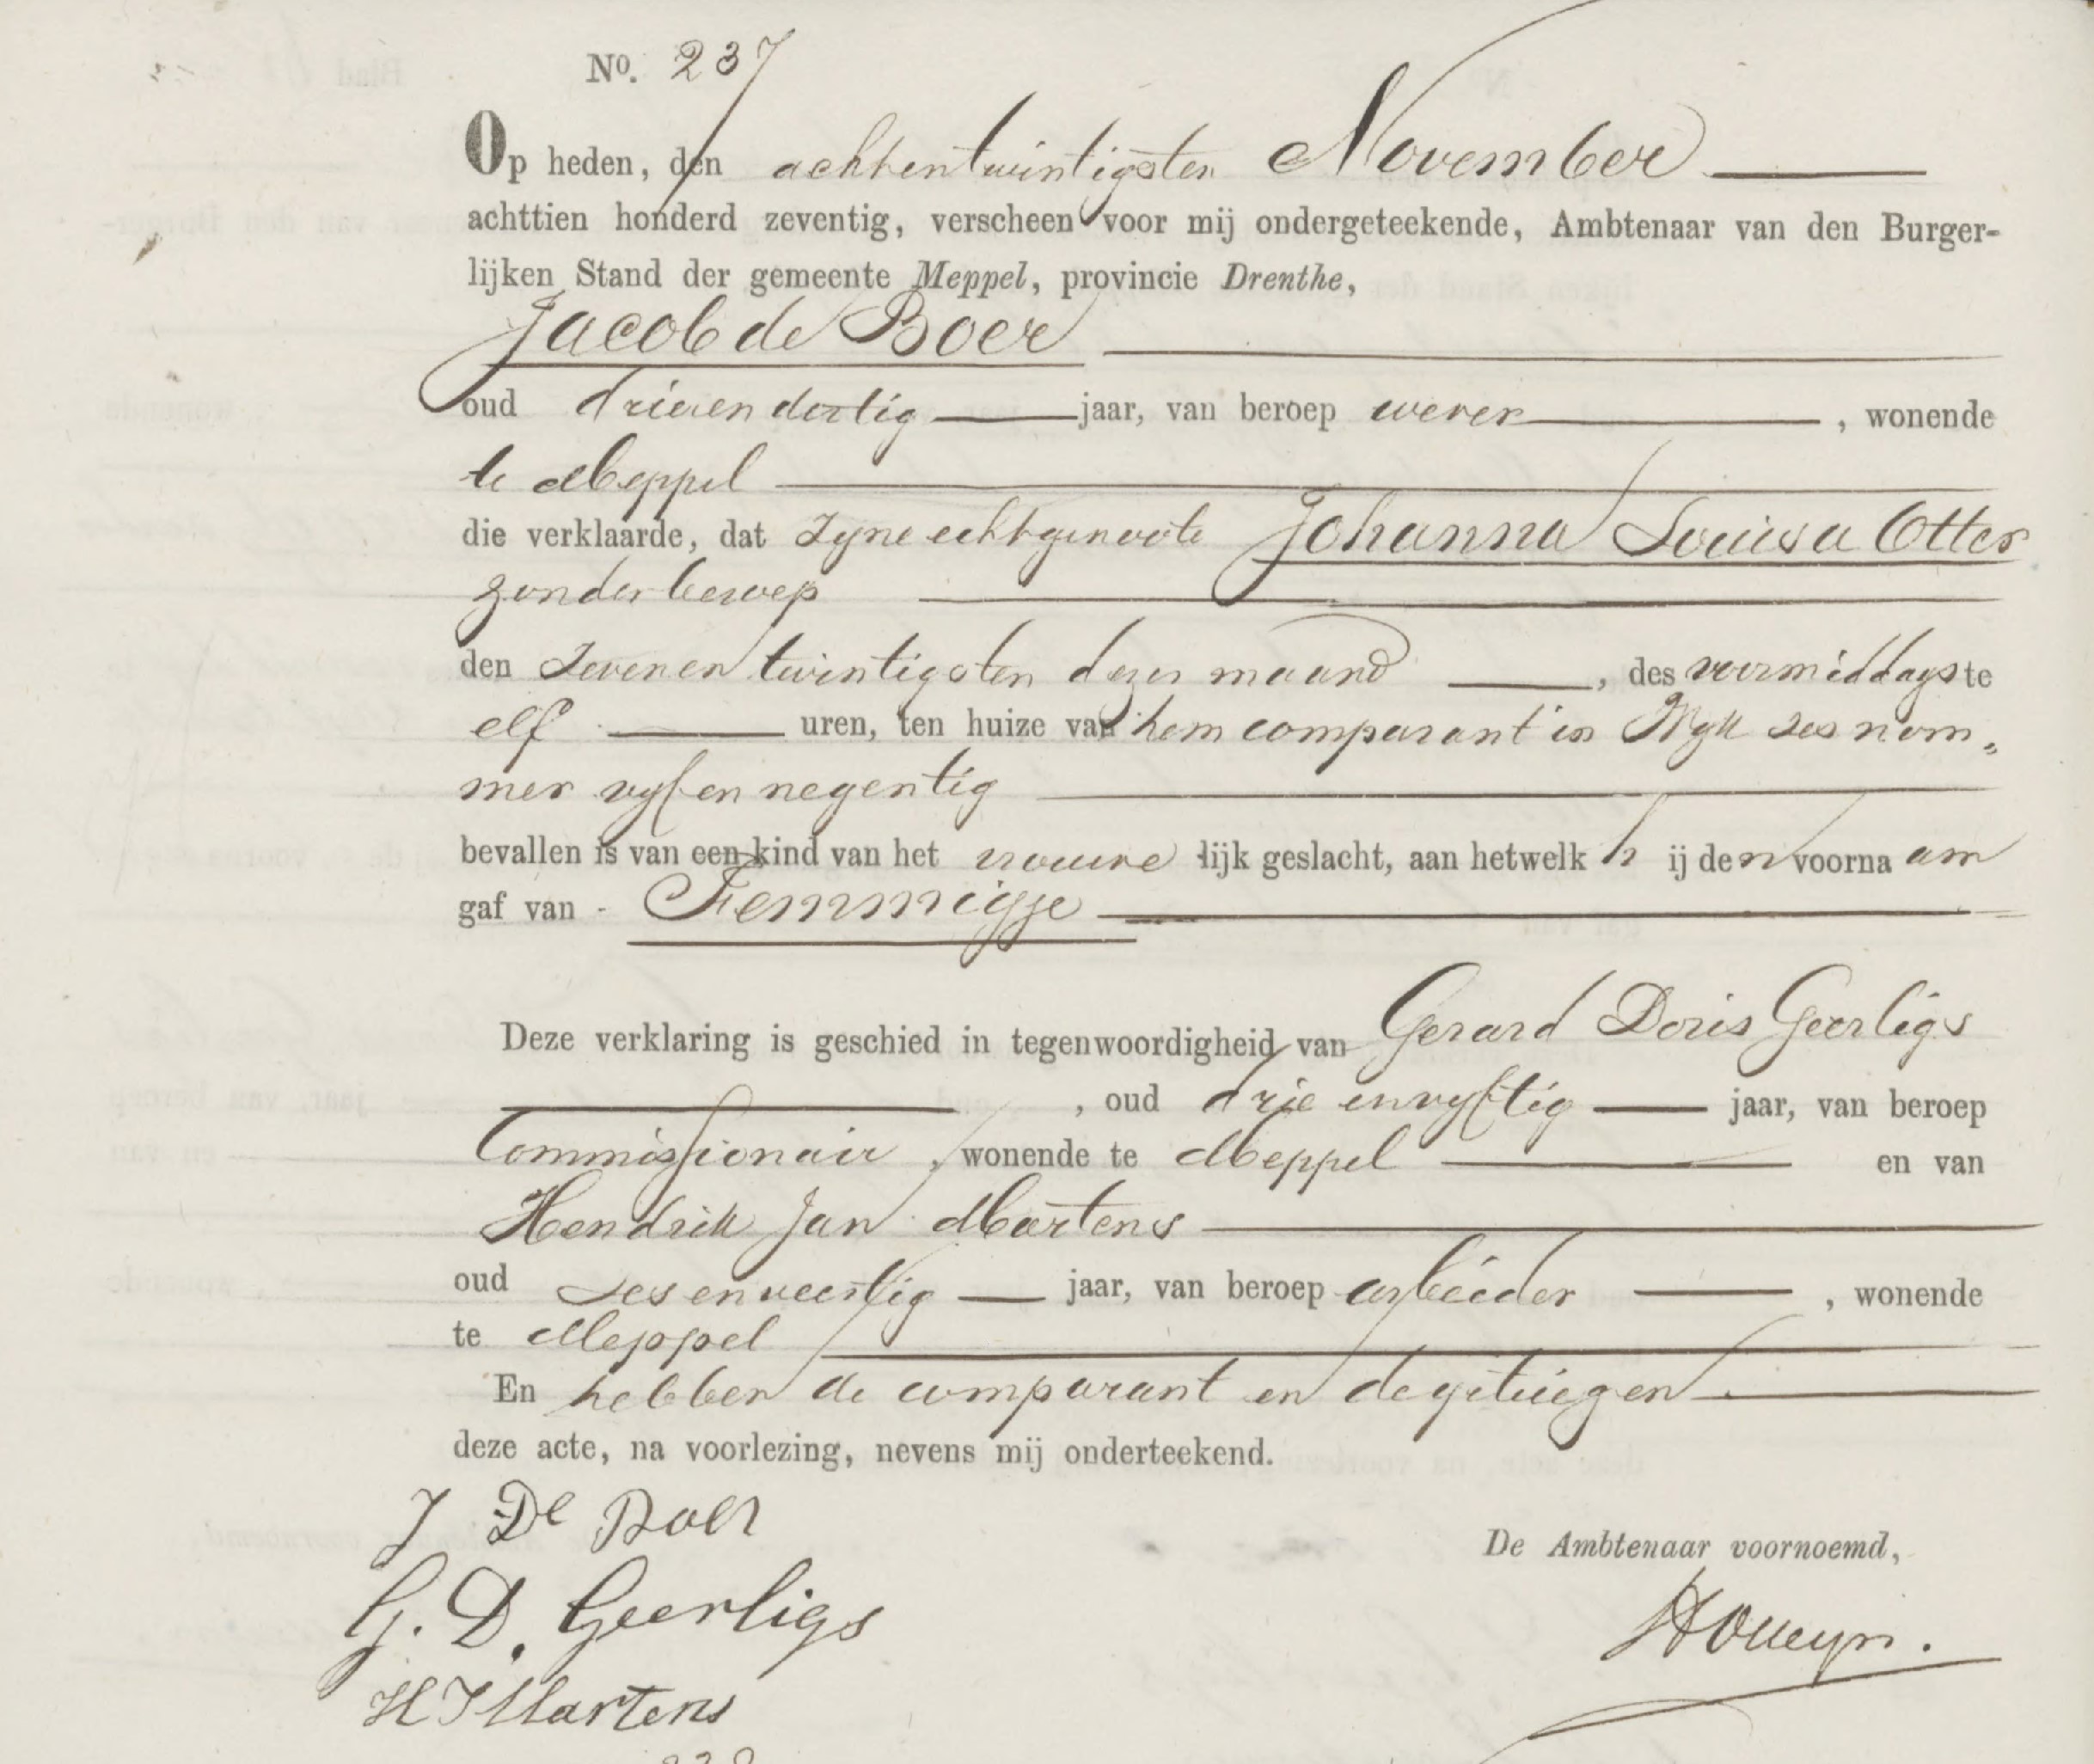 No. 237
Op heden, den achtentwintigsten November
achttien honderd zeventig, verscheen voor mij ondergeteekende, Ambtenaar van den Burger-
lijken Stand der gemeente Meppel, provincie Drenthe,
Jacob de Boer
oud drieendertig jaar, van beroep wever, wonende
te Meppel
die verklaarde, dat zyne echtgenoote Johanna Louisa Otter
zonder beroep
den zevenentwintigsten dezer maand, des voormiddags te
elf uren, ten huize van hem comparant in Wyk zes nom„
mer vyfennegentig
bevallen is van een kind van het vrouwelijk geslacht, aan hetwelk hij den voornaam
gaf van Femmigje
Deze verklaring is geschied in tegenwoordigheid van Gerard Doris Geerligs
, oud drie envyftig jaar, van beroep
Commissionair, wonende te Meppel en van
Hendrik Jan Martens
oud zesenveertig jaar, van beroep arbeider, wonende
te Meppel
En hebben de comparant en de getuigen
deze acte, na voorlezing, nevens mij onderteekend.
J De Boer
G. D. Geerligs
H J Martens
De Ambtenaar voornoemd,